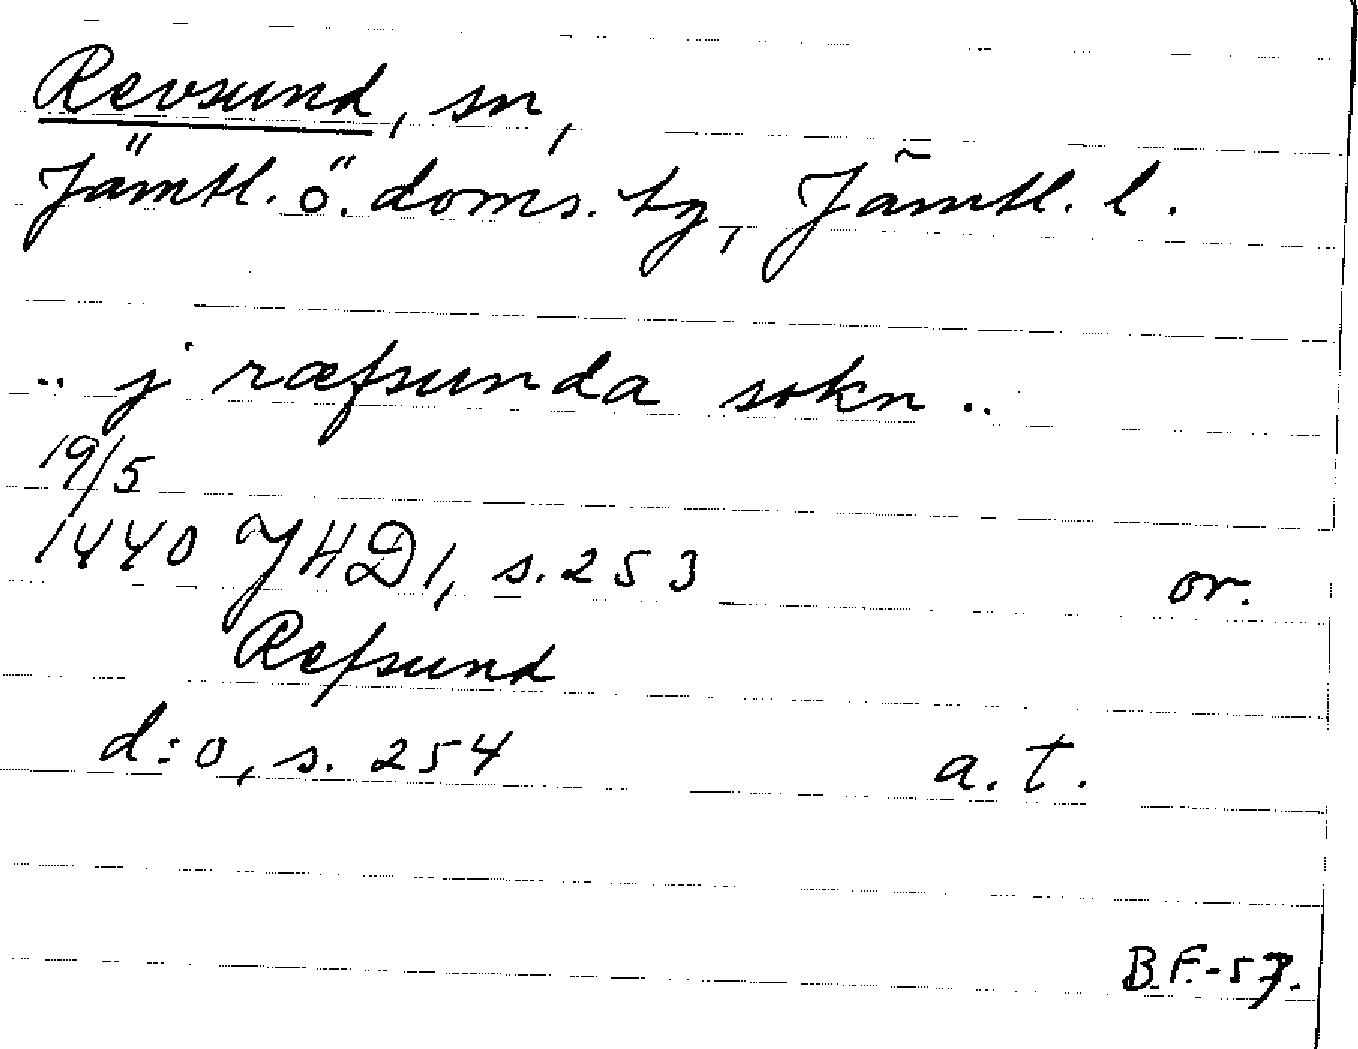 Revsund, sn,
Jämtl. ö. doms. tg, Jämtl. l.
.. j ræfsunda sokn ..
19/5
1440 JHD 1, s. 253 or.
Refsund
d:o, s. 254 a. t.
B.F.-57.